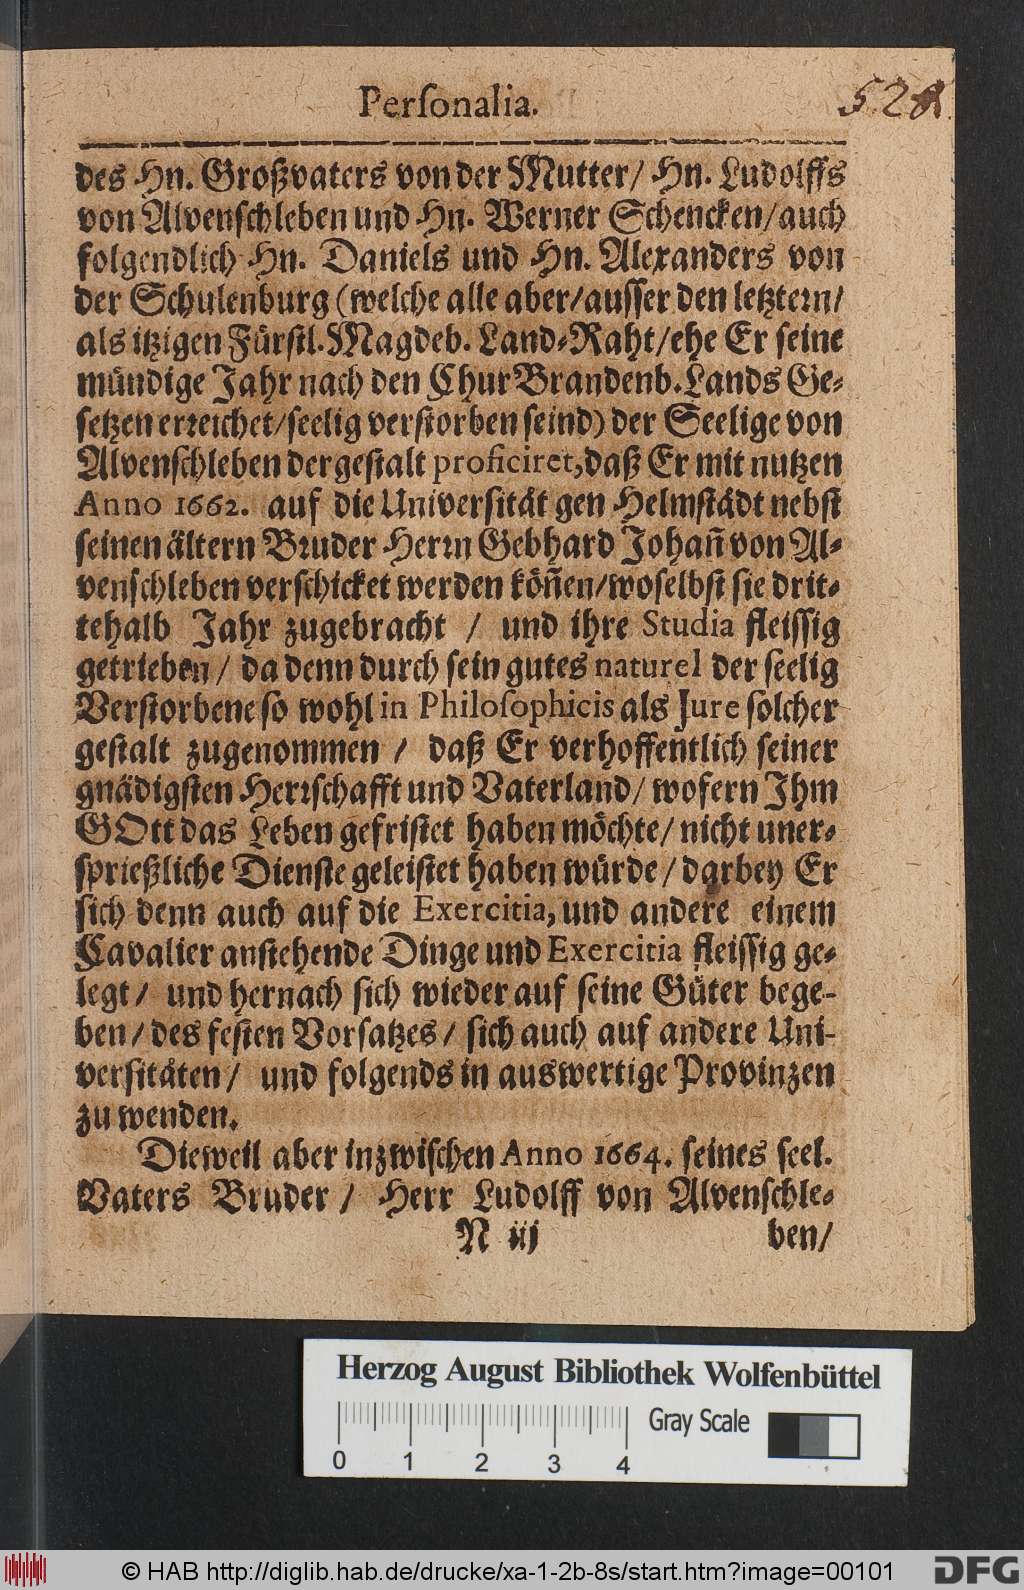 Perſonalia.
528
des Hn. Großvaters von der Mutter/ Hn. Ludolffs
von Alvenſchleben und Hn. Werner Schencken/ auch
folgendlich Hn. Daniels und Hn. Alexanders von
der Schulenburg (welche alle aber/ auſſer den letztern/
als itzigen Fürſtl. Magdeb. Land-Raht/ ehe Er ſeine
mündige Jahr nach den ChurBrandenb. Lands Ge-
ſetzen erreichet/ ſeelig verſtorben ſeind) der Seelige von
Alvenſchleben dergeſtalt proficiret, daß Er mit nutzen
Anno 1662. auf die Univerſität gen Helmſtädt nebſt
ſeinen ältern Bruder Herrn Gebhard Johan̄ von Al-
venſchleben verſchicket werden kön̄en/ woſelbſt ſie drit-
tehalb Jahr zugebracht / und ihre Studia fleiſſig
getrieben/ da denn durch ſein gutes naturel der ſeelig
Verſtorbene ſo wohl in Philoſophicis als Jure ſolcher
geſtalt zugenommen / daß Er verhoffentlich ſeiner
gnädigſten Herrſchafft und Vaterland/ wofern Ihm
GOtt das Leben gefriſtet haben möchte/ nicht uner-
ſprießliche Dienſte geleiſtet haben würde/ darbey Er
ſich denn auch auf die Exercitia, und andere einem
Cavalier anſtehende Dinge und Exercitia fleiſſig ge-
legt/ und hernach ſich wieder auf ſeine Güter bege-
ben/ des feſten Vorſatzes/ ſich auch auf andere Uni-
verſitäten/ und folgends in auswertige Provinzen
zu wenden.
Dieweil aber inzwiſchen Anno 1664. ſeines ſeel.
Vaters Bruder / Herr Ludolff von Alvenſchle-
N iij ben/
Herzog August Bibliothek Wolfenbüttel
Gray Scale
0 1 2 3 4
© HAB http://diglib.hab.de/drucke/xa-1-2b-8s/start.htm?image=00101 DFG